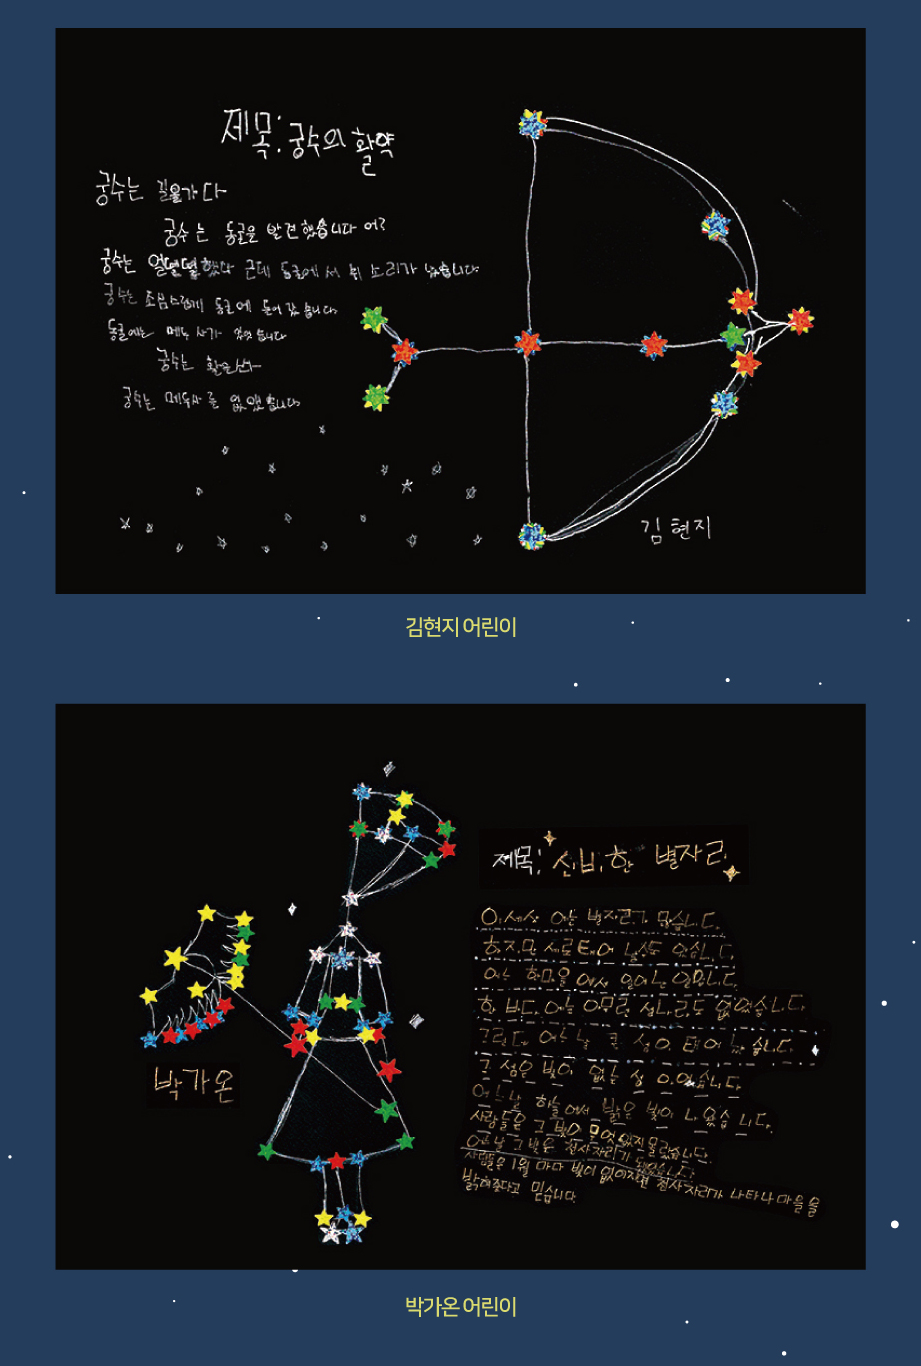 제목: 궁수의 활약
궁수는 길을가다
궁수는 동굴을 발견했습니다 어?
궁수는 얼덜덜했다 근데 동굴에서 뭔 소리가 났습니다.
궁수는 조심스럽게 동굴에 들어갔습니다.
동굴에는 메두사가 있었습니다
궁수는 활을쏘아
궁수는 메두사를 없앴습니다.
김현지
김현지 어린이
제목: 신비한 별자리
이 세상에는 별자리가 많습니다.
하지만 새로 태어
어느
한 부다. 어느 아무런 없었습니다
그런데 어느날 큰 성이 태어났습니다.
그 성은 빛이 없는 성 이었습니다.
어느날 하늘에서 밝은 빛이 나왔습니다.
사람들은 그 빛이 무엇인지 몰랐습니다.
그 빛은 천사자리가
사람들은 1월 마다 빛이 없어지면 천사자리가 나타나 마을을
밝혀준다고 믿습니다
박가온
박가온 어린이